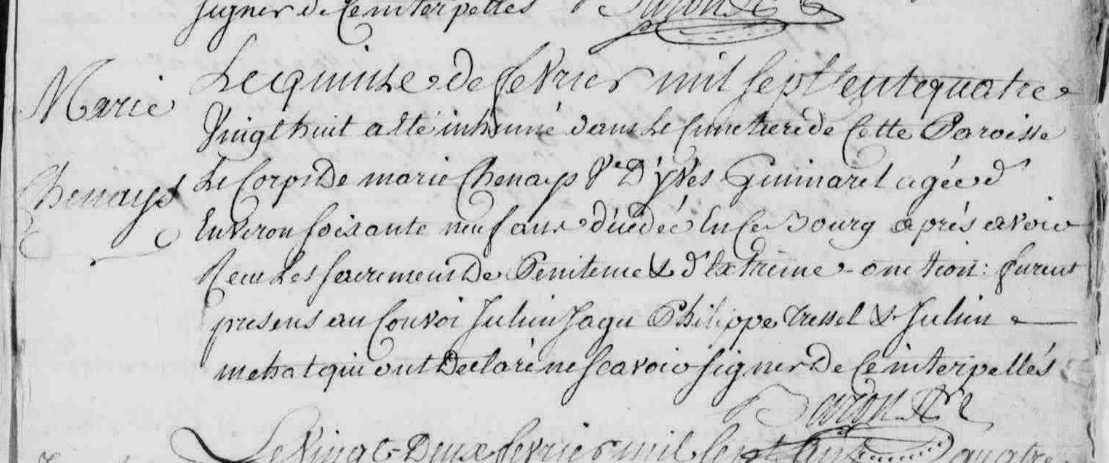 signer de ce interpellés
Marie
Chenays
Le quinze de fevrier mil sept cent quatre
Vingt huit a eté inhumé dans Le Cimetiere de Cette Paroisse
Le Corps De marie Chenays Ve D'yves Guimarel agée d'
Environ soixante neuf ans décédée En Ce Bourg après avoir
Recu Les sacremens De Penitence & d'Extrême-onction: furent
presens au Convoi Julien Jagu Philippe Tressel & Julien
mehat qui ont Déclaré ne scavoir signer De Ce interpellés
Le Vingt-Deux fevrier mil sept cent quatre